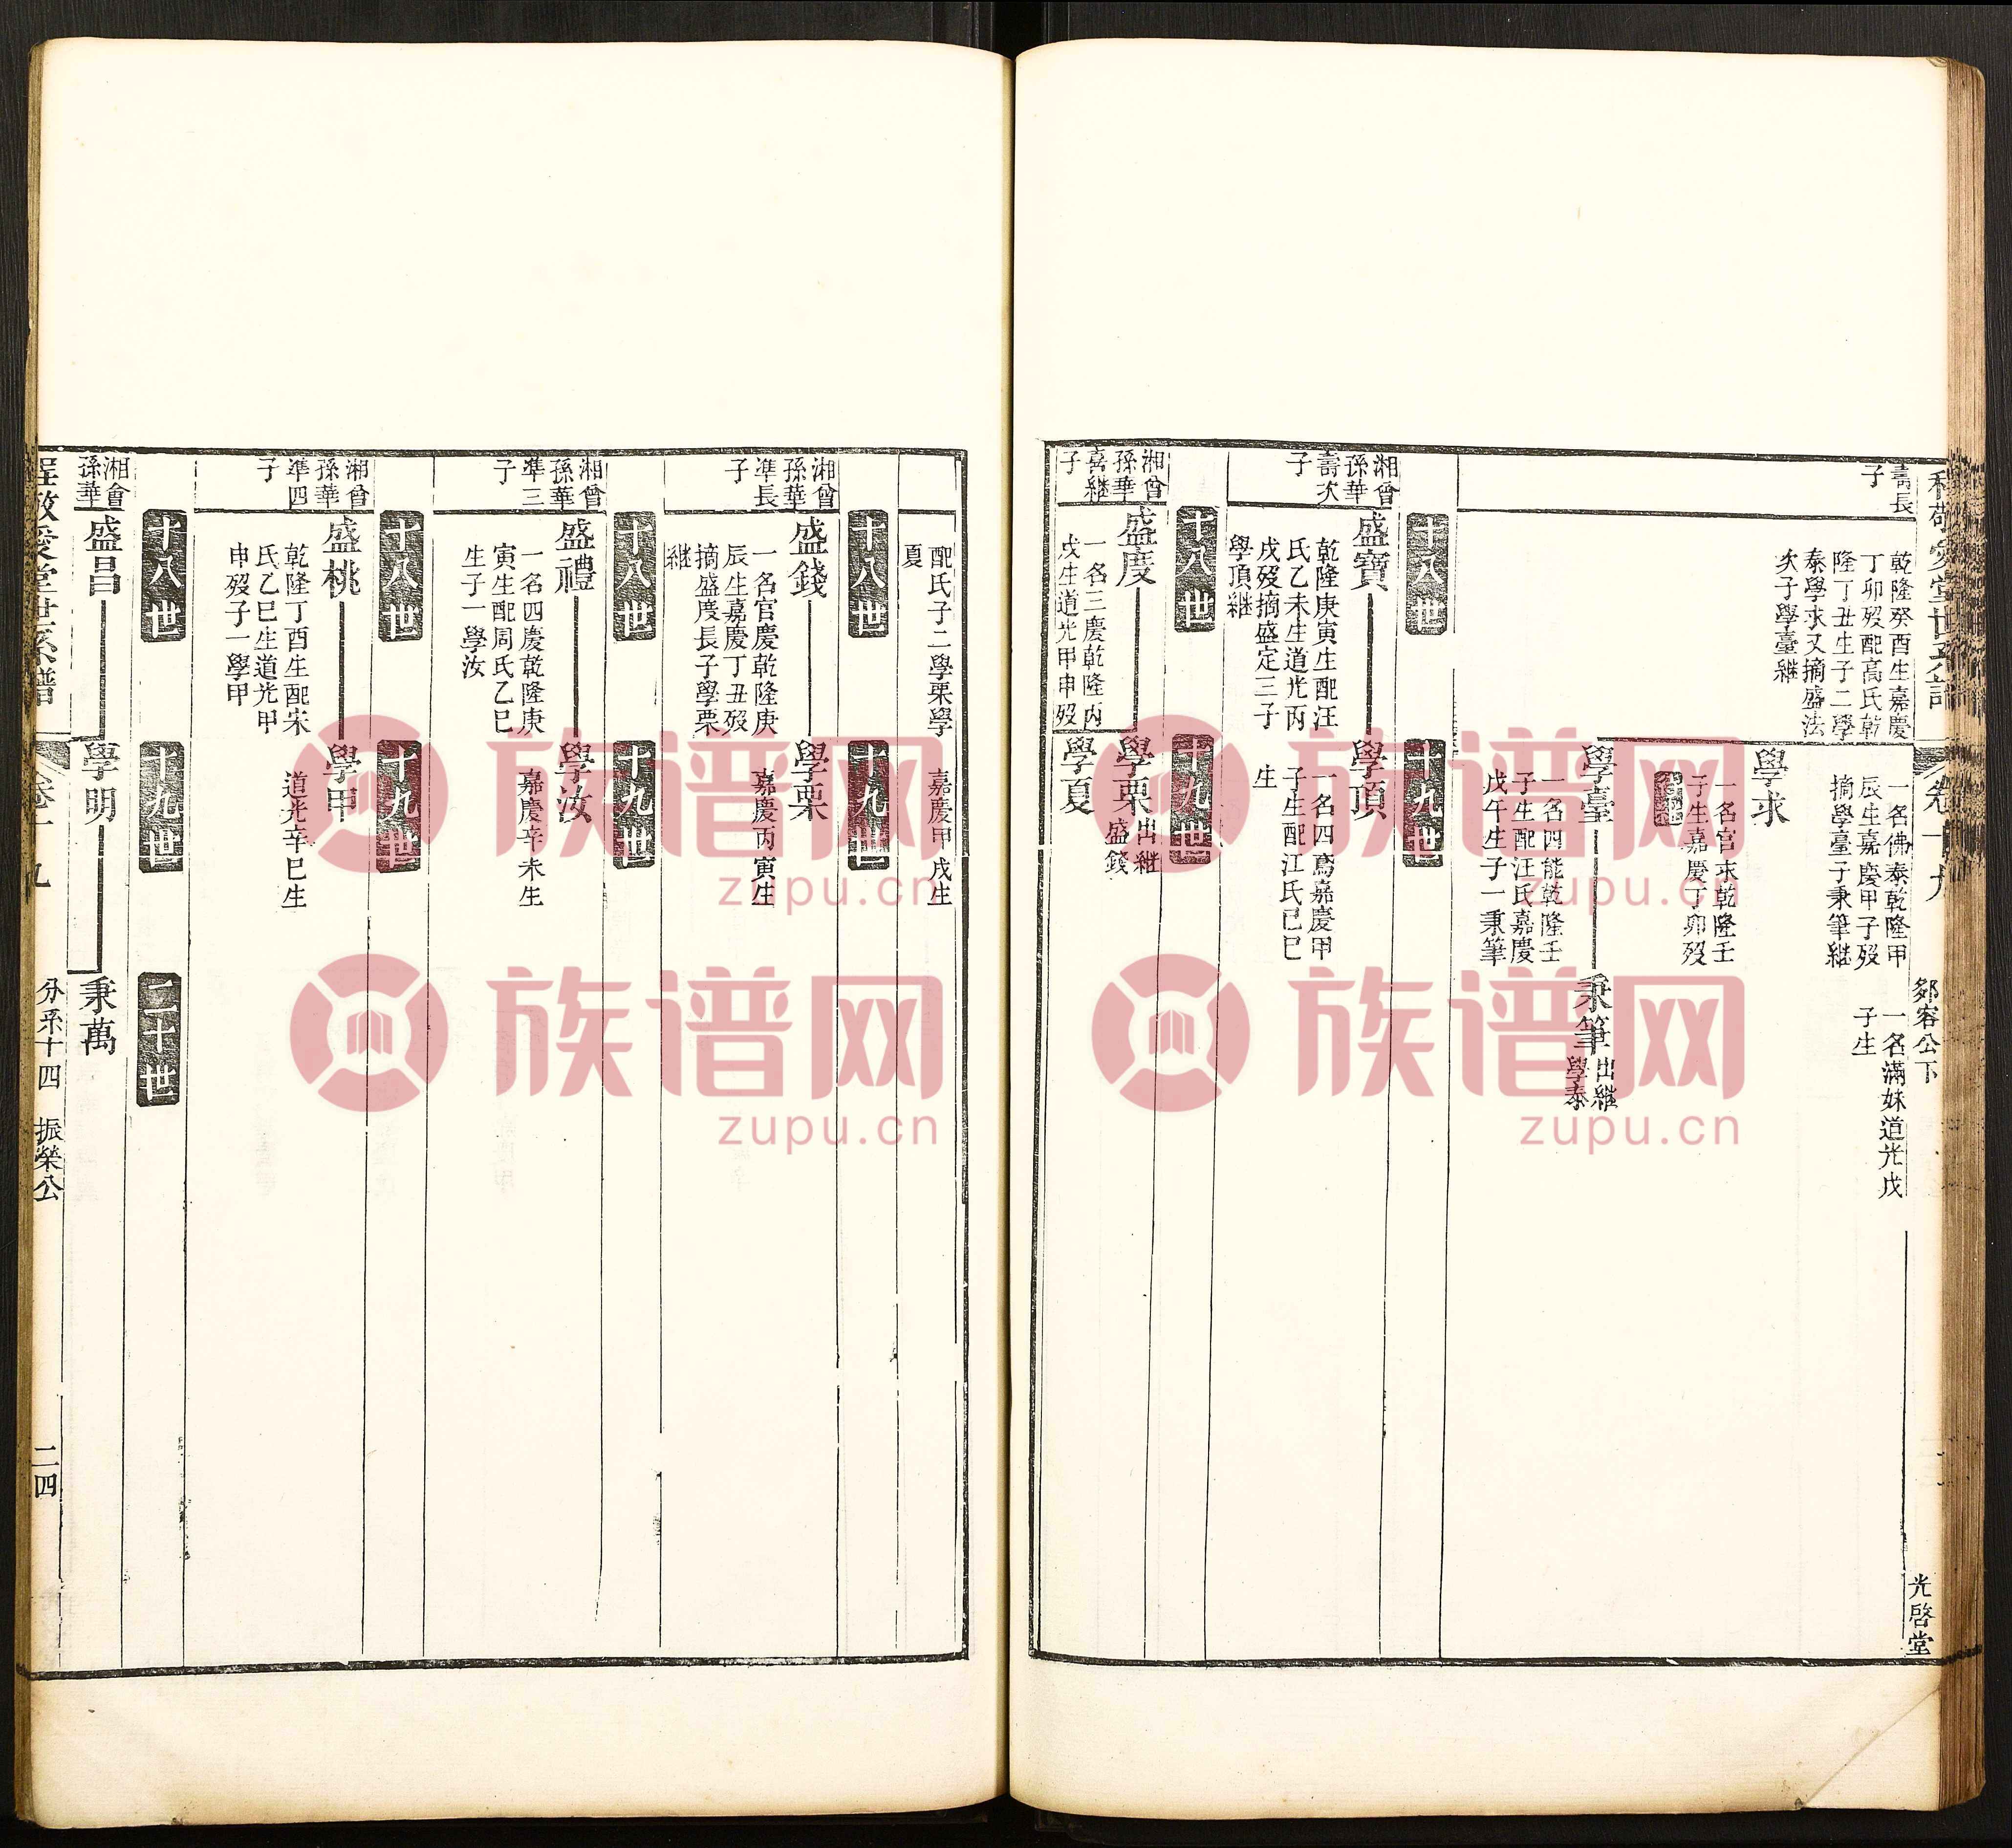 程敬愛堂世系譜
卷十九
邠容公下
光啓堂
壽長
子
乾隆癸酉生嘉慶
丁卯歿配高氏乾
隆丁丑生子二學
泰學求又摘盛法
次子學臺繼
一名佛泰乾隆甲
辰生嘉慶甲子歿
摘學臺子秉筆繼
一名滿妹道光戊
子生
學求
一名官求乾隆壬
子生嘉慶丁卯歿
學臺
一名四能乾隆壬
子生配汪氏嘉慶
戊午生子一秉筆
秉筆
出繼
學泰
十八世
十九世
湘曾
孫華
壽次
子
盛寶
乾隆庚寅生配汪
氏乙未生道光丙
戌歿摘盛定三子
學頂繼
學頂
一名四鳶嘉慶甲
子生配江氏己巳
生
十八世
十九世
湘曾
孫華
喜繼
子
盛度
一名三慶乾隆丙
戌生道光甲申歿
學栗
出繼
盛錢
學夏
配氏子二學栗學
夏
嘉慶甲戌生
十八世
十九世
湘曾
孫華
準長
子
盛錢
一名官慶乾隆庚
辰生嘉慶丁丑歿
摘盛度長子學栗
繼
學栗
嘉慶丙寅生
十八世
十九世
湘曾
孫華
準三
子
盛禮
一名四慶乾隆庚
寅生配周氏乙巳
生子一學汝
學汝
嘉慶辛未生
十八世
十九世
湘曾
孫華
準四
子
盛桃
乾隆丁酉生配宋
氏乙巳生道光甲
申歿子一學甲
學甲
道光辛巳生
十八世
十九世
二十世
湘曾
孫華
盛昌
學明
秉萬
程敬愛堂世系譜
卷十九
分系十四
振榮公
二四
族谱网
zupu.cn
族谱网
zupu.cn
族谱网
zupu.cn
族谱网
zupu.cn